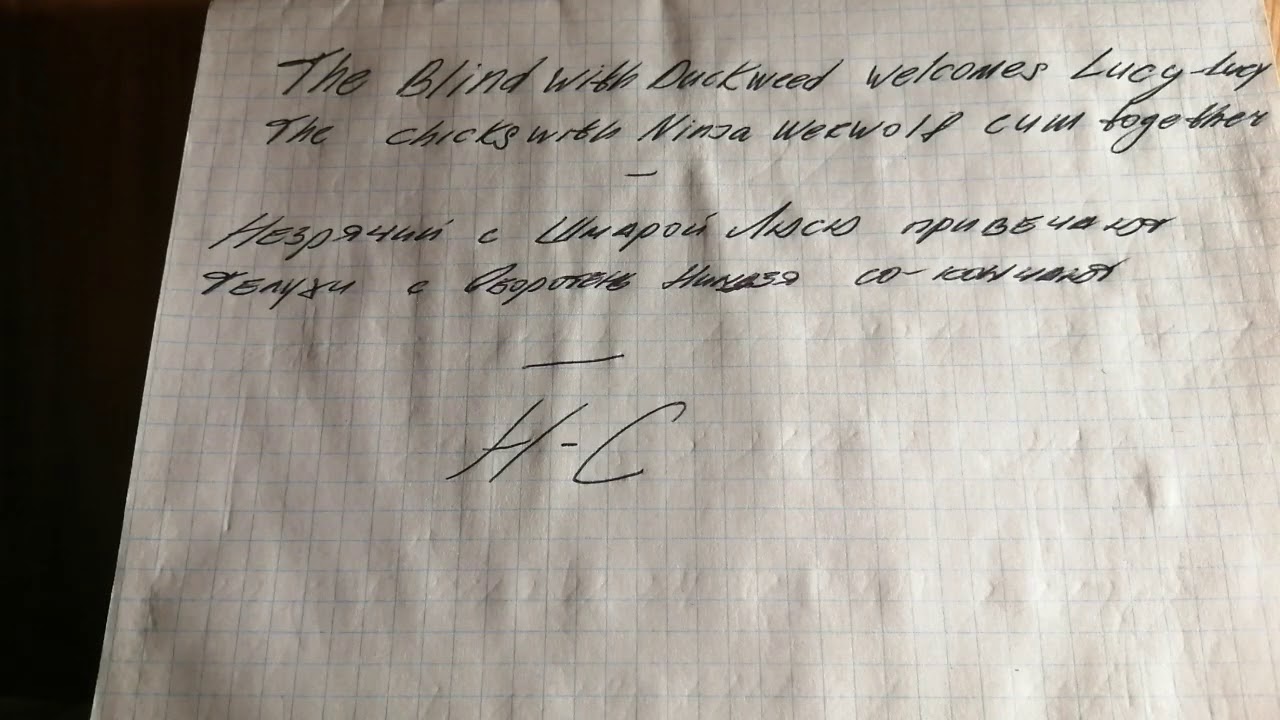 The Blind with Duckweed welcomes Lucy-Lucy
The chicks with Ninja werwolf cum together
—
Незрячий с Шмарой Люсю привечают
Телухи с Оборотень Ниндзя со-кончают
—
Н-С